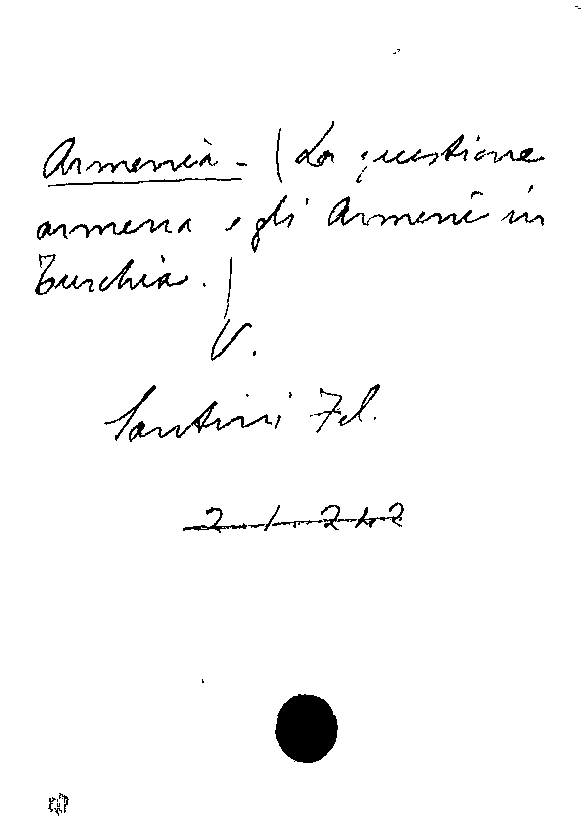 Armenia - (La questione
armena e gli Armeni in
Turchia.)
V.
Santini Fel.